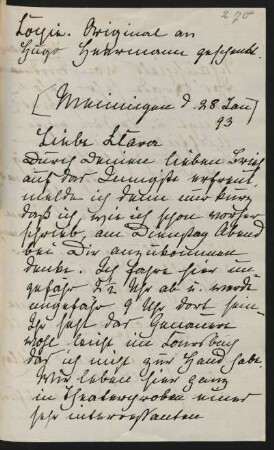 270
Copie. Original an
Hugo Heermann geschenkt.
[Meiningen d. 28 Jan
93
Liebe Clara
Durch Deinen lieben Brief
auf das Innigste erfreut
melde ich denn nur kurz
daß ich, wie ich schon vorher
schrieb, am Dienstag Abend
bei Dir anzukommen
denke. Ich fahre hier un-
gefähr 2 Uhr ab u. werde
ungefähr 9 Uhr dort sein.
Ihr seht das Genauere
wohl leicht im Coursbuch
das ich nicht zur Hand habe.
Wir leben hier ganz
in Theaterproben einer
sehr interessanten